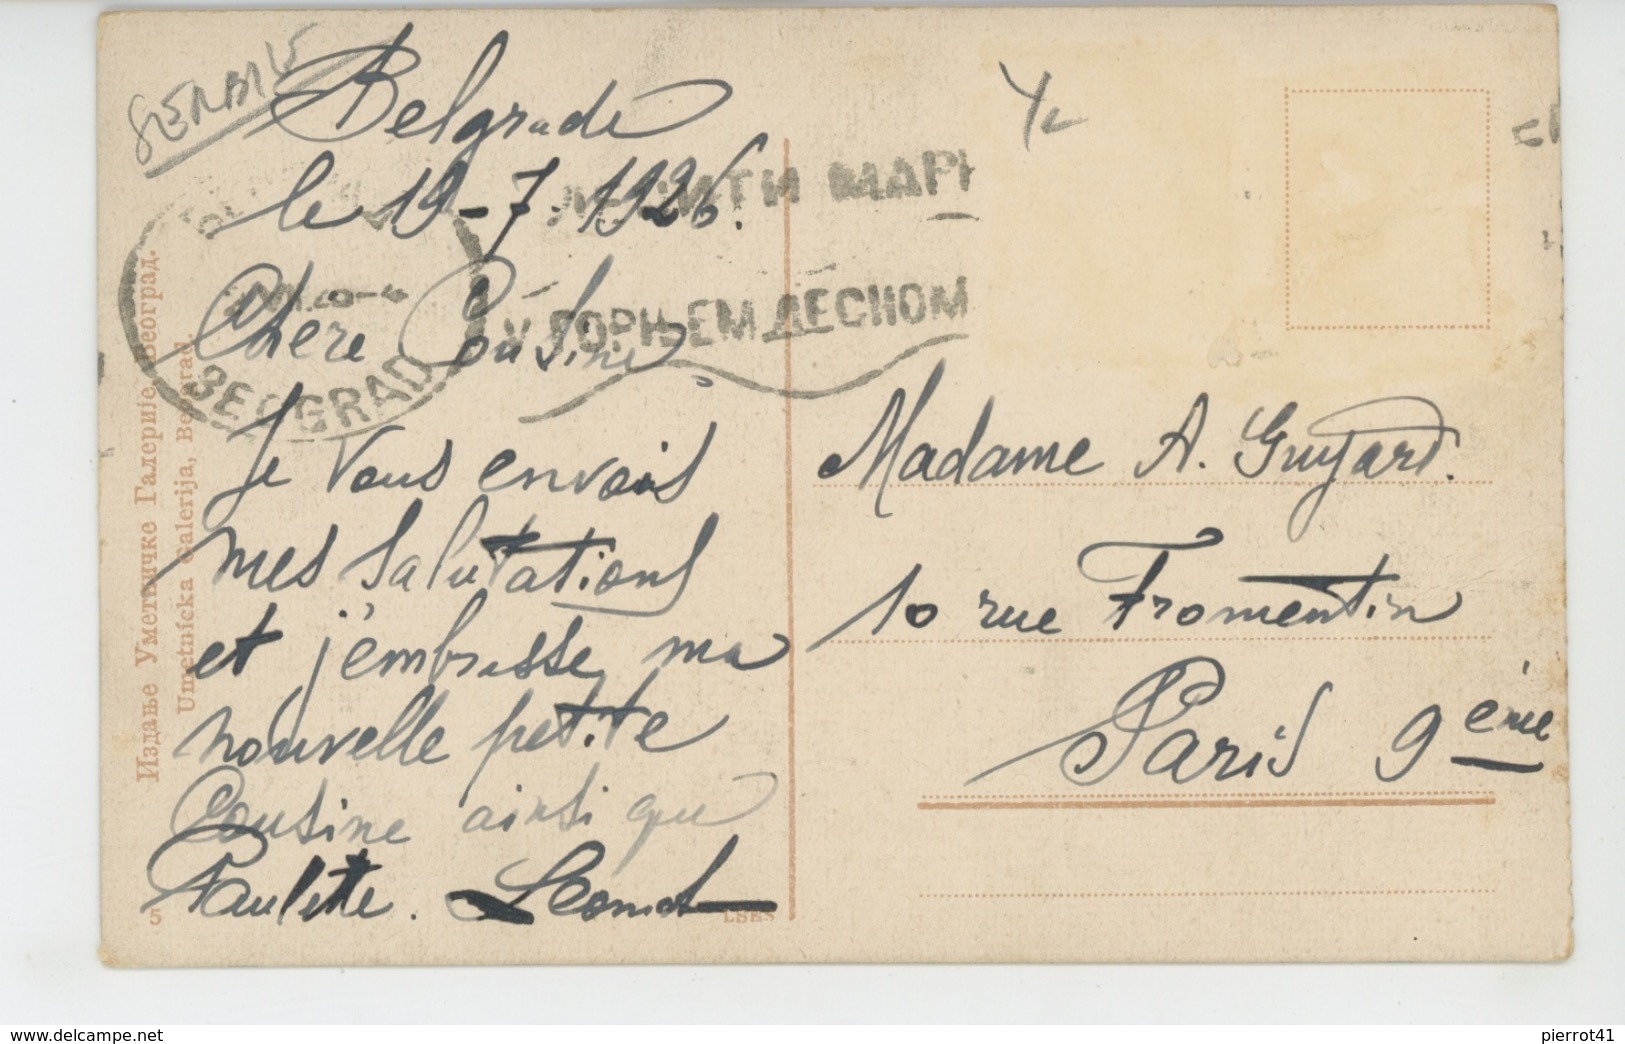 SERBIE
Belgrade
le 19-7-1926.
Chere Cousine
Je vous envois
mes salutations
et j'embrasse ma
nouvelle petite
Cousine ainsi que
Paulette.
BEOGRAD
МАРК
У ГОРЊЕМ ДЕСНОМ
Madame A. Guyard.
10 rue Fromentin
Paris 9ème
Издање Уметничке Галерије, Београд.
Umetnicka Galerija, Beograd.
5
www.delcampe.net
pierrot41